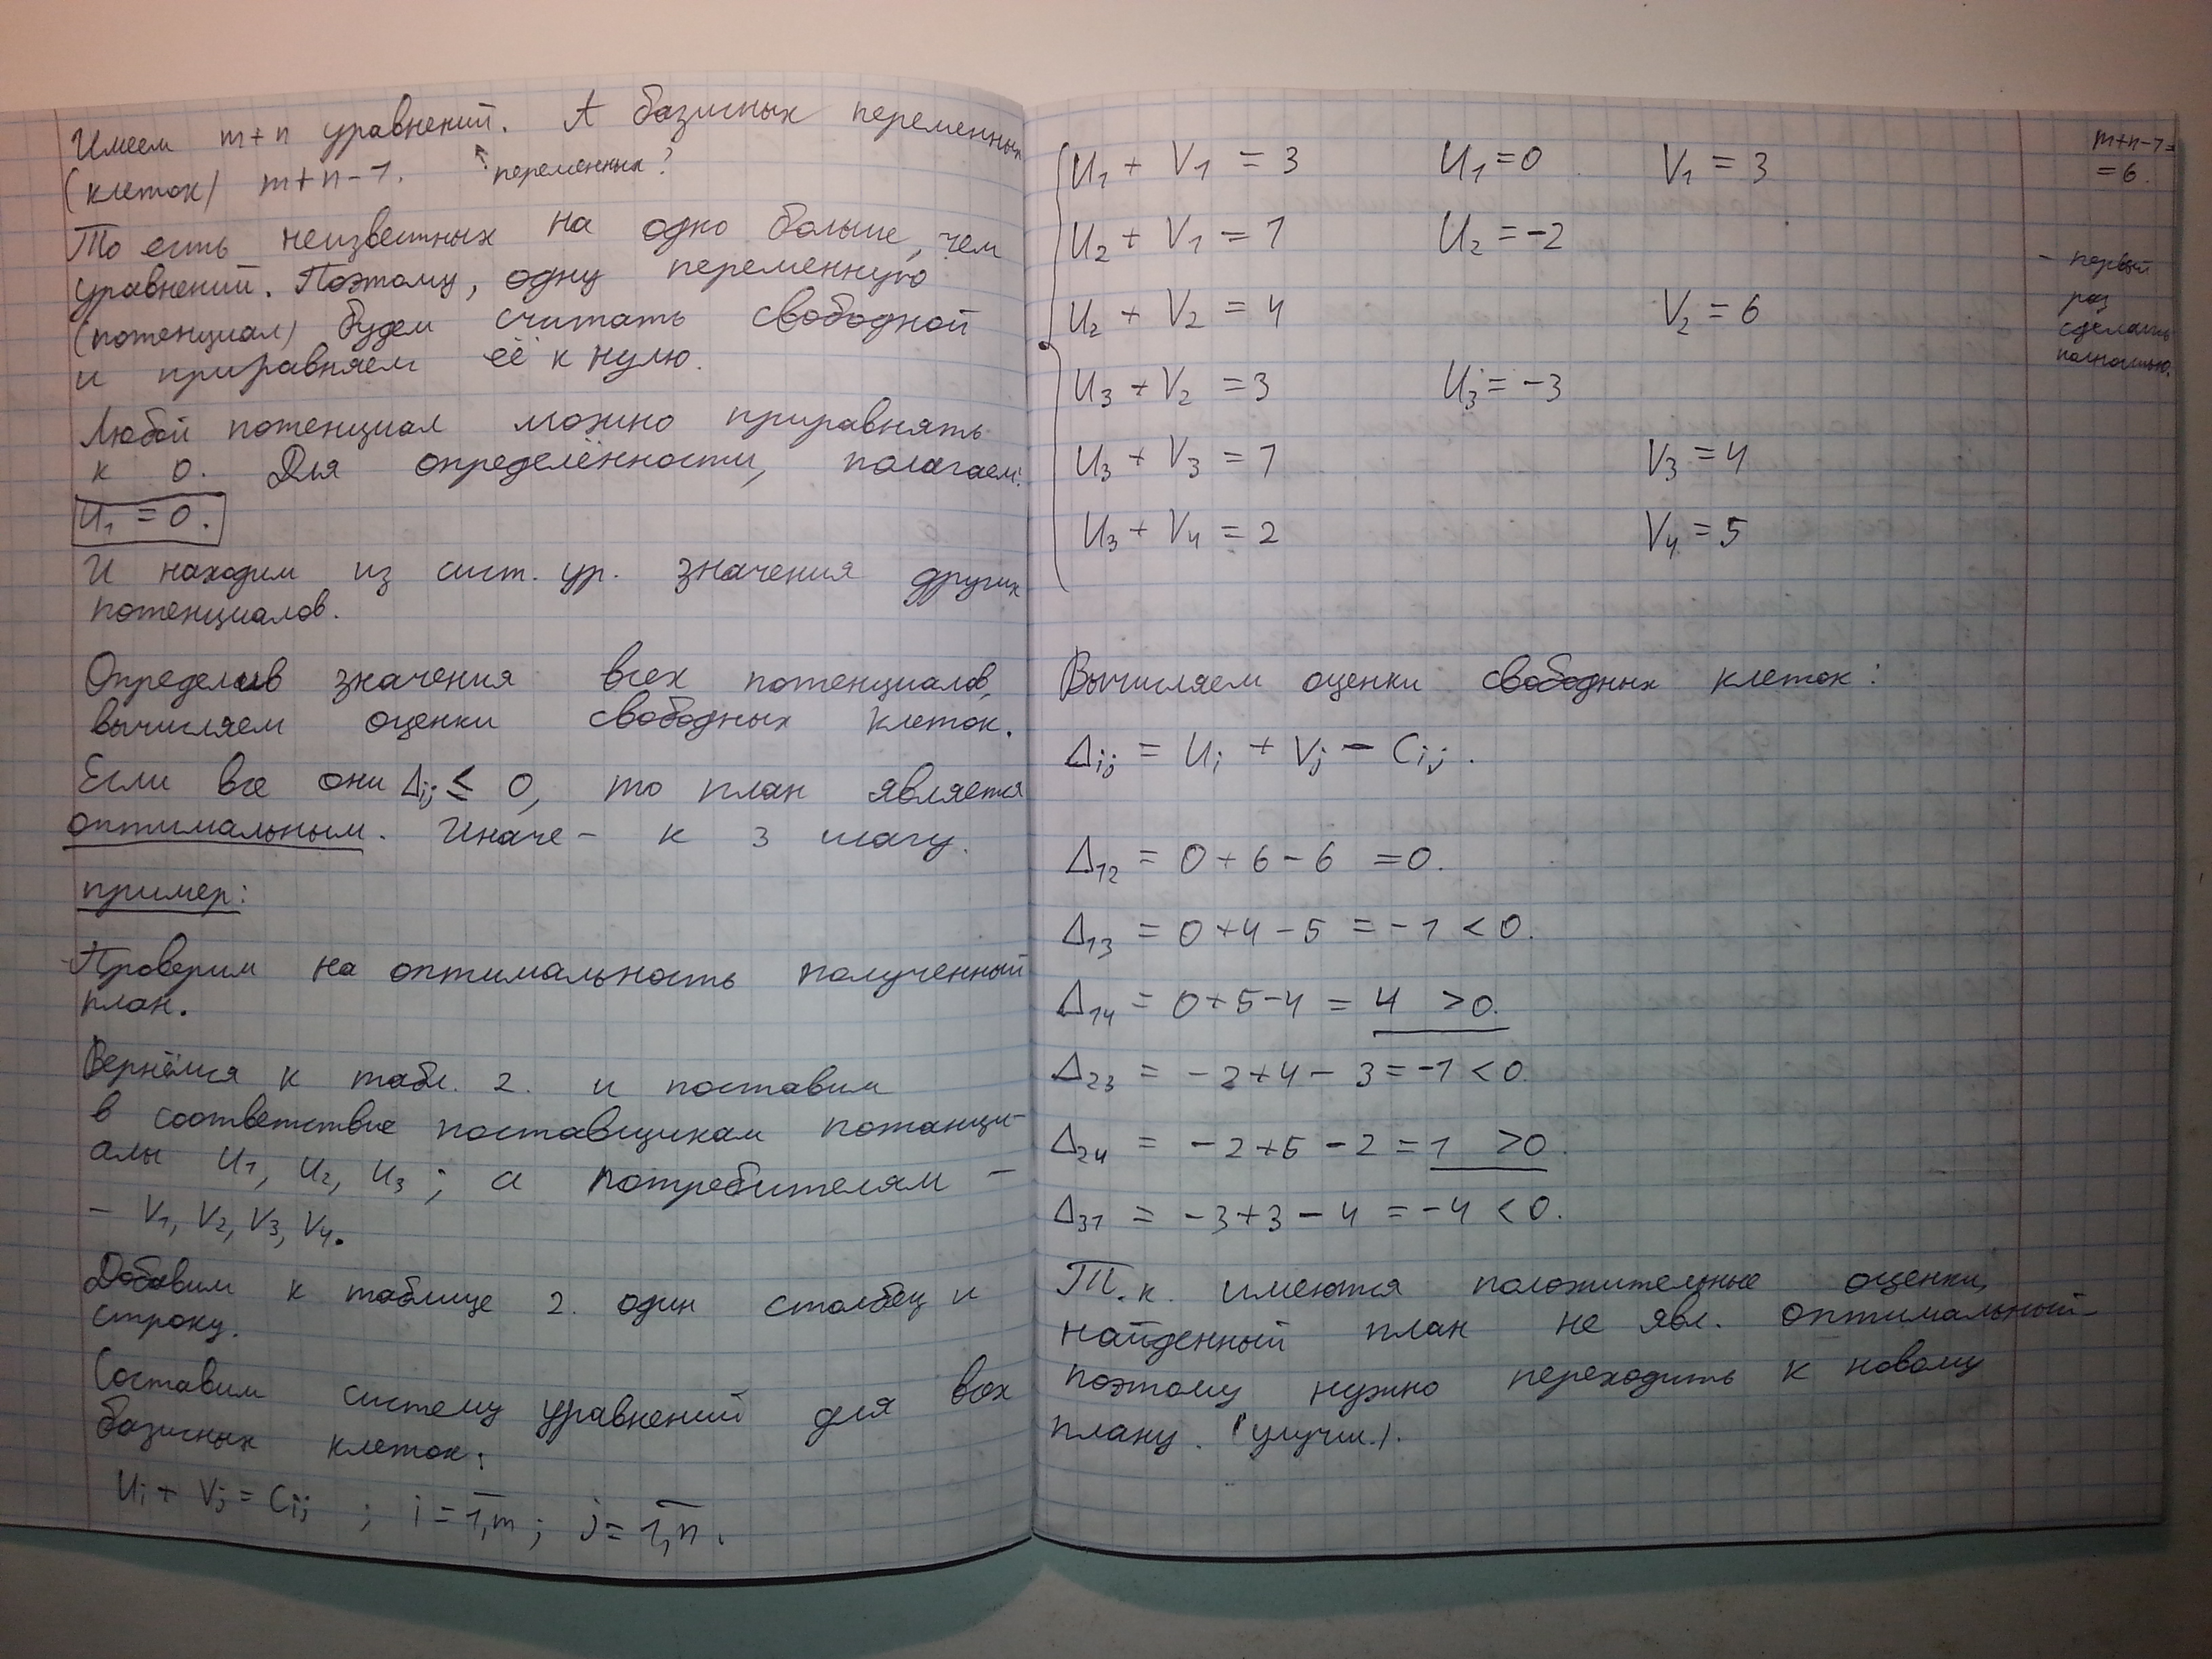 Имеем m+n уравнений. А базисных переменных
(клеток) m+n-1. переменных?
То есть неизвестных на одно больше, чем
уравнений. Поэтому, одну переменную
(потенциал) будем считать свободной
и приравняем её к нулю.
Любой потенциал можно приравнять
к 0. Для определённости, полагаем:
U₁ = 0.
И находим из сист. ур. значения других
потенциалов.
Определив значения всех потенциалов,
вычисляем оценки свободных клеток.
Если все они Δij ≤ 0, то план является
оптимальным. Иначе - к 3 шагу.
пример:
Проверим на оптимальность полученный
план.
Вернёмся к табл. 2. и поставим
в соответствие поставщикам потанци-
алы U₁, U₂, U₃; а потребителям -
- V₁, V₂, V₃, V₄.
Добавим к таблице 2. один столбец и
строку.
Составим систему уравнений для всех
базисных клеток:
Ui + Vj = Cij ; i = 1,m; j = 1,n.
U₁ + V₁ = 3 U₁ = 0 V₁ = 3
U₂ + V₁ = 1 U₂ = -2
U₂ + V₂ = 4 V₂ = 6
U₃ + V₂ = 3 U₃ = -3
U₃ + V₃ = 1 V₃ = 4
U₃ + V₄ = 2 V₄ = 5
Вычисляем оценки свободных клеток:
Δij = Ui + Vj - Cij.
Δ₁₂ = 0 + 6 - 6 = 0.
Δ₁₃ = 0 + 4 - 5 = -1 < 0.
Δ₁₄ = 0 + 5 - 4 = 4 > 0.
Δ₂₃ = -2 + 4 - 3 = -1 < 0.
Δ₂₄ = -2 + 5 - 2 = 1 > 0.
Δ₃₁ = -3 + 3 - 4 = -4 < 0.
Т.к. имеются положительные оценки,
найденный план не явл. оптимальный-
поэтому нужно переходить к новому
плану. (улучш.).
m+n-1=
= 6.
- первый
раз
сделать
полностью.